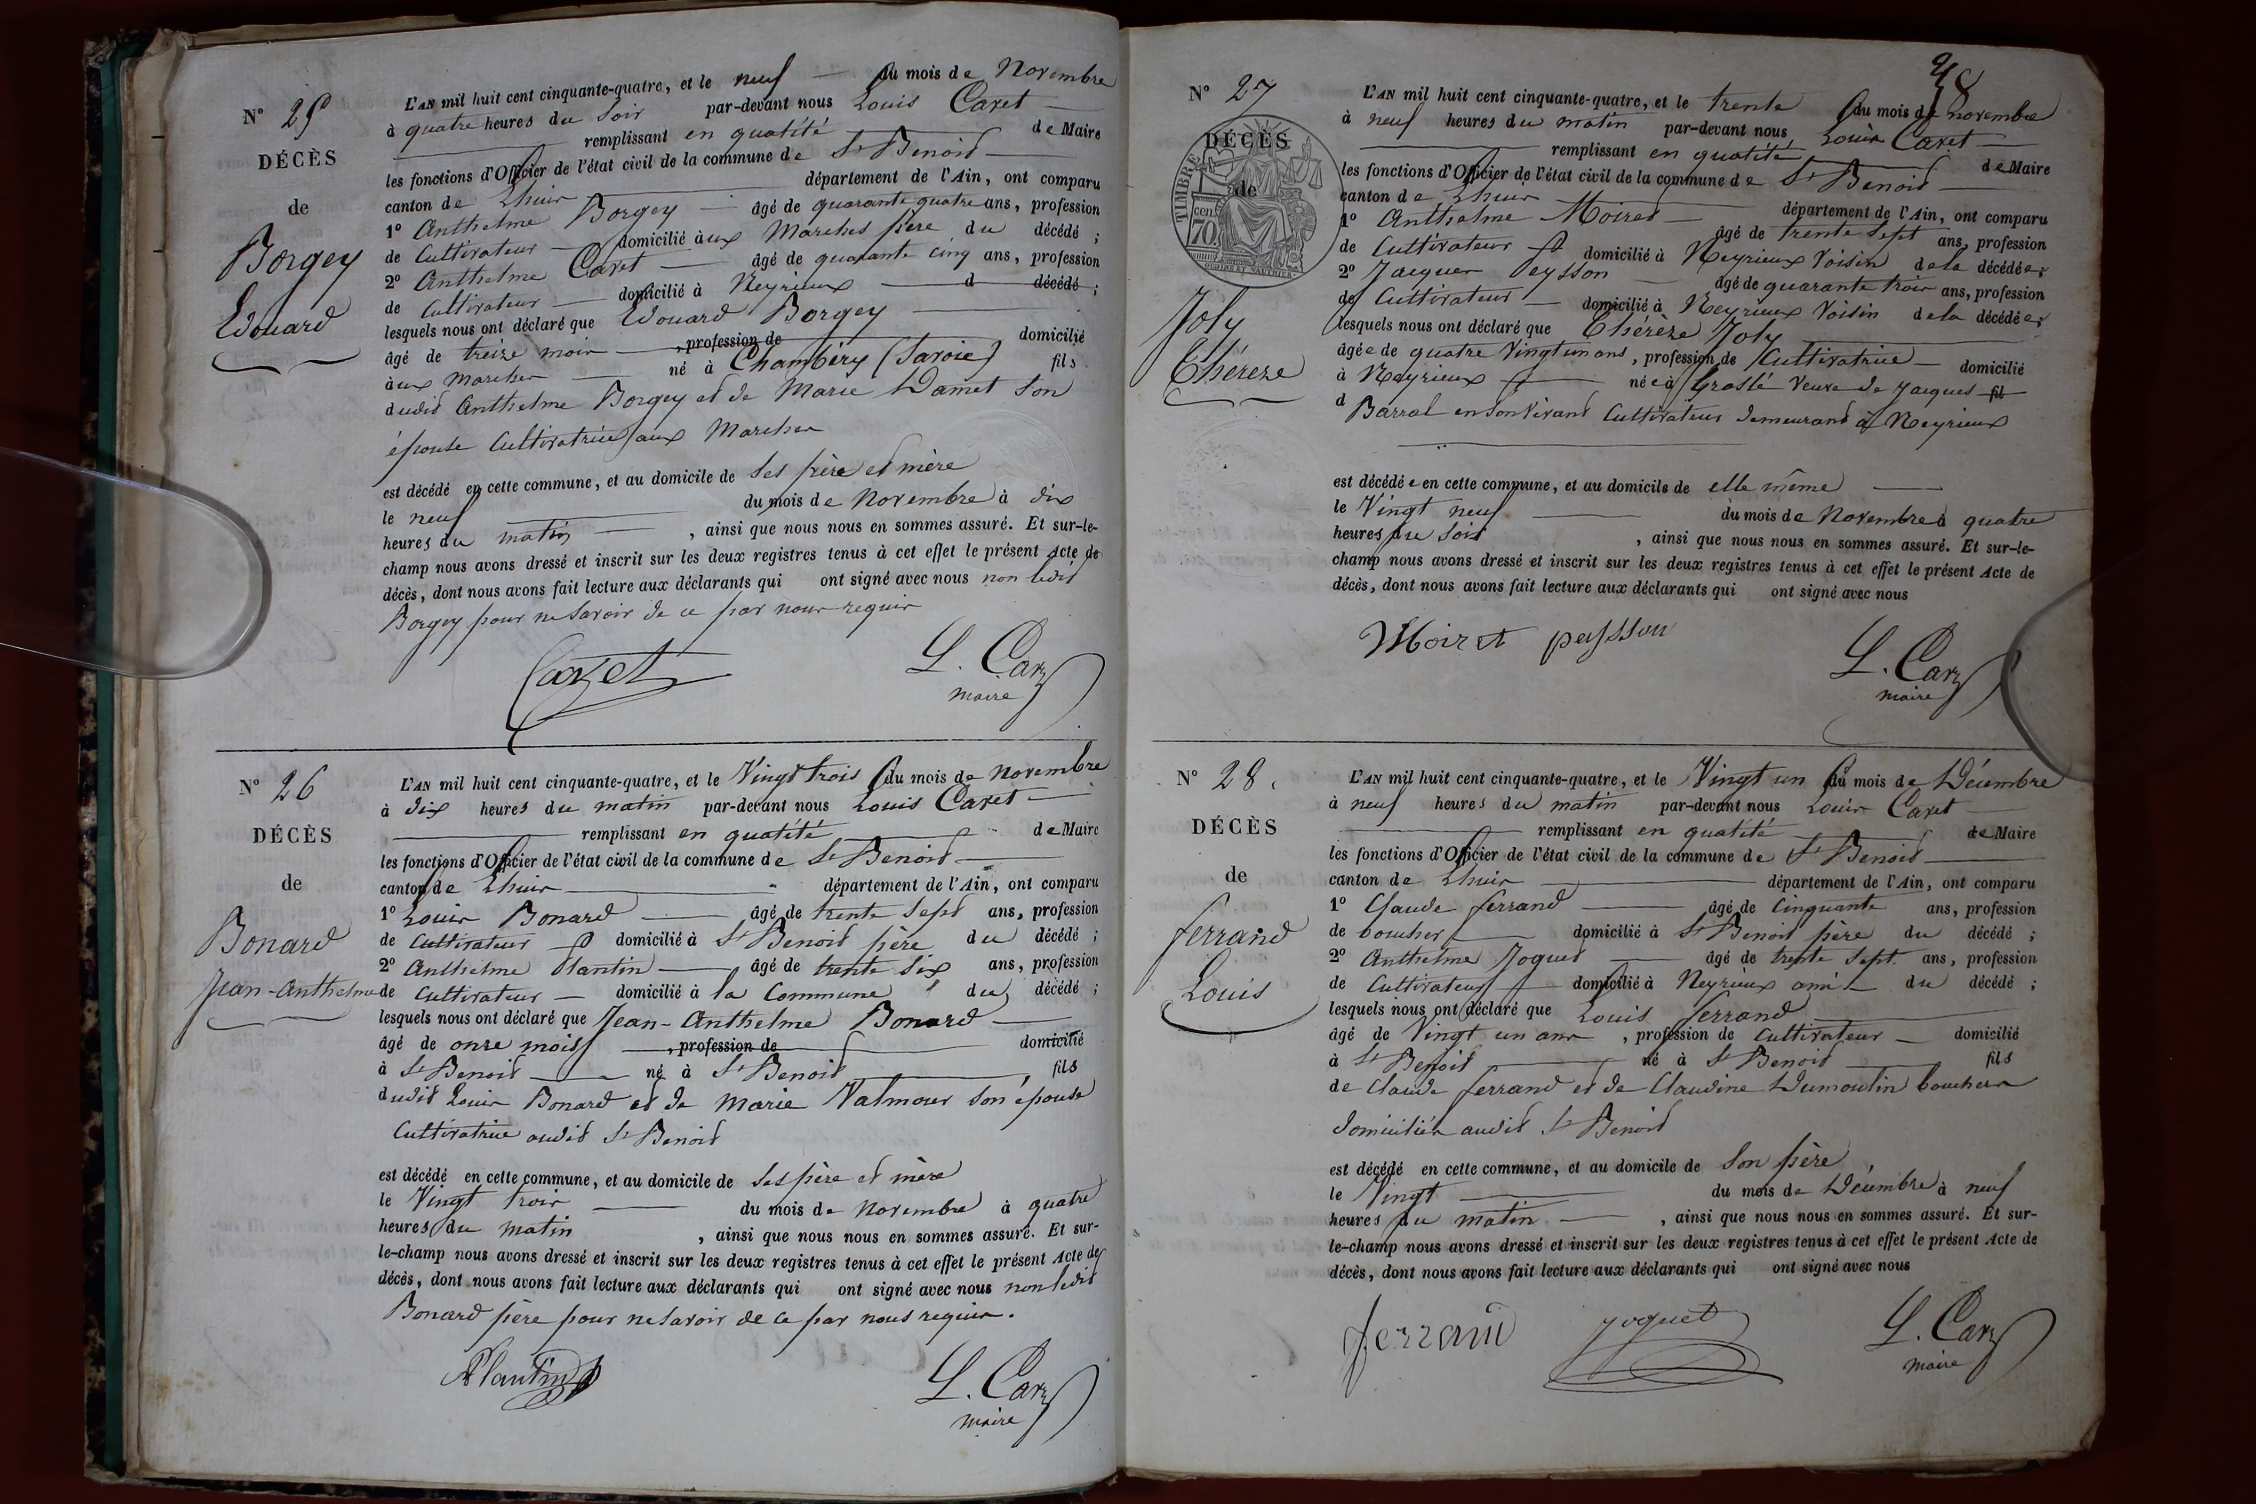 N° 25
DÉCÈS
de
Borgey
Edouard
L'AN mil huit cent cinquante-quatre, et le neuf du mois de Novembre
à quatre heures du soir par-devant nous Louis Caret
remplissant en qualité de Maire
les fonctions d'Officier de l'état civil de la commune de St Benoit
canton de Lhuis département de l'Ain, ont comparu
1° Anthelme Borgey âgé de quarante quatre ans, profession
de Cultivateur domicilié aux Marches père du décédé ;
2° Anthelme Caret âgé de quarante cinq ans, profession
de Cultivateur domicilié à Neyrieux d décédé ;
lesquels nous ont déclaré que Edouard Borgey
âgé de treize mois , profession de domicilié
aux Marches né à Chambéry (Savoie) fils
dudit Anthelme Borgey et de Marie Damet son
épouse Cultivatrice aux Marches
est décédé en cette commune, et au domicile de ses père et mère
le neuf du mois de Novembre à dix
heures du matin , ainsi que nous nous en sommes assuré. Et sur-le-
champ nous avons dressé et inscrit sur les deux registres tenus à cet effet le présent Acte de
décès, dont nous avons fait lecture aux déclarants qui ont signé avec nous non ledit
Borgey pour ne savoir de ce par nous requis
Caret L. Caret
maire
N° 26
DÉCÈS
de
Bonard
Jean-Anthelme
L'AN mil huit cent cinquante-quatre, et le Vingt trois du mois de novembre
à dix heures du matin par-devant nous Louis Caret
remplissant en qualité de Maire
les fonctions d'Officier de l'état civil de la commune de St Benoit
canton de Lhuis département de l'Ain, ont comparu
1° Louis Bonard âgé de trente sept ans, profession
de Cultivateur domicilié à St Benoit père du décédé ;
2° Anthelme Plantin âgé de trente six ans, profession
de Cultivateur domicilié à la Commune du décédé ;
lesquels nous ont déclaré que Jean-Anthelme Bonard
âgé de onze mois , profession de domicilié
à St Benoit né à St Benoit , fils
dudit Louis Bonard et de Marie Valmour son épouse
Cultivatrice audit St Benoit
est décédé en cette commune, et au domicile de ses père et mère
le Vingt trois du mois de Novembre à quatre
heures du matin , ainsi que nous nous en sommes assuré. Et sur-
le-champ nous avons dressé et inscrit sur les deux registres tenus à cet effet le présent Acte de
décès, dont nous avons fait lecture aux déclarants qui ont signé avec nous non ledit
Bonard père pour ne savoir de ce par nous requis.
Plantin L. Caret
maire
48
N° 27
DÉCÈS
de
TIMBRE
cen.
70
Joly
Thérèze
L'AN mil huit cent cinquante-quatre, et le trente du mois de novembre
à neuf heures du matin par-devant nous Louis Caret
remplissant en qualité de Maire
les fonctions d'Officier de l'état civil de la commune de St Benoit
canton de Lhuis département de l'Ain, ont comparu
1° Anthelme Moiret âgé de trente sept ans, profession
de Cultivateur domicilié à Neyrieux Voisin de la décédée ;
2° Jacques Peysson âgé de quarante trois ans, profession
de Cultivateur domicilié à Neyrieux Voisin de la décédée ;
lesquels nous ont déclaré que Thérèze Joly
âgée de quatre Vingt un ans, profession de Cultivatrice domicilié
à Neyrieux née à Groslé Veuve de Jacques fil
d Barral en son Vivant Cultivateur demeurant à Neyrieux
est décédée en cette commune, et au domicile de elle même
le Vingt neuf du mois de Novembre à quatre
heures du Soir , ainsi que nous nous en sommes assuré. Et sur-le-
champ nous avons dressé et inscrit sur les deux registres tenus à cet effet le présent Acte de
décès, dont nous avons fait lecture aux déclarants qui ont signé avec nous
Moiret peysson L. Caret
maire
N° 28.
DÉCÈS
de
Ferrand
Louis
L'AN mil huit cent cinquante-quatre, et le Vingt un du mois de Décembre
à neuf heures du matin par-devant nous Louis Caret
remplissant en qualité de Maire
les fonctions d'Officier de l'état civil de la commune de St Benoit
canton de Lhuis département de l'Ain, ont comparu
1° Claude Ferrand âgé de Cinquante ans, profession
de boucher domicilié à St Benoit père du décédé ;
2° Anthelme Joguet âgé de trente sept ans, profession
de Cultivateur domicilié à Neyrieux ami du décédé ;
lesquels nous ont déclaré que Louis Ferrand
âgé de Vingt un ans , profession de Cultivateur domicilié
à St Benoit né à St Benoit fils
de Claude Ferrand et de Claudine Dumoulin bouchers
domiciliés audit St Benoit
est décédé en cette commune, et au domicile de son père
le Vingt du mois de Décembre à neuf
heures du matin , ainsi que nous nous en sommes assuré. Et sur-
le-champ nous avons dressé et inscrit sur les deux registres tenus à cet effet le présent Acte de
décès, dont nous avons fait lecture aux déclarants qui ont signé avec nous
ferrand joguet L. Caret
maire